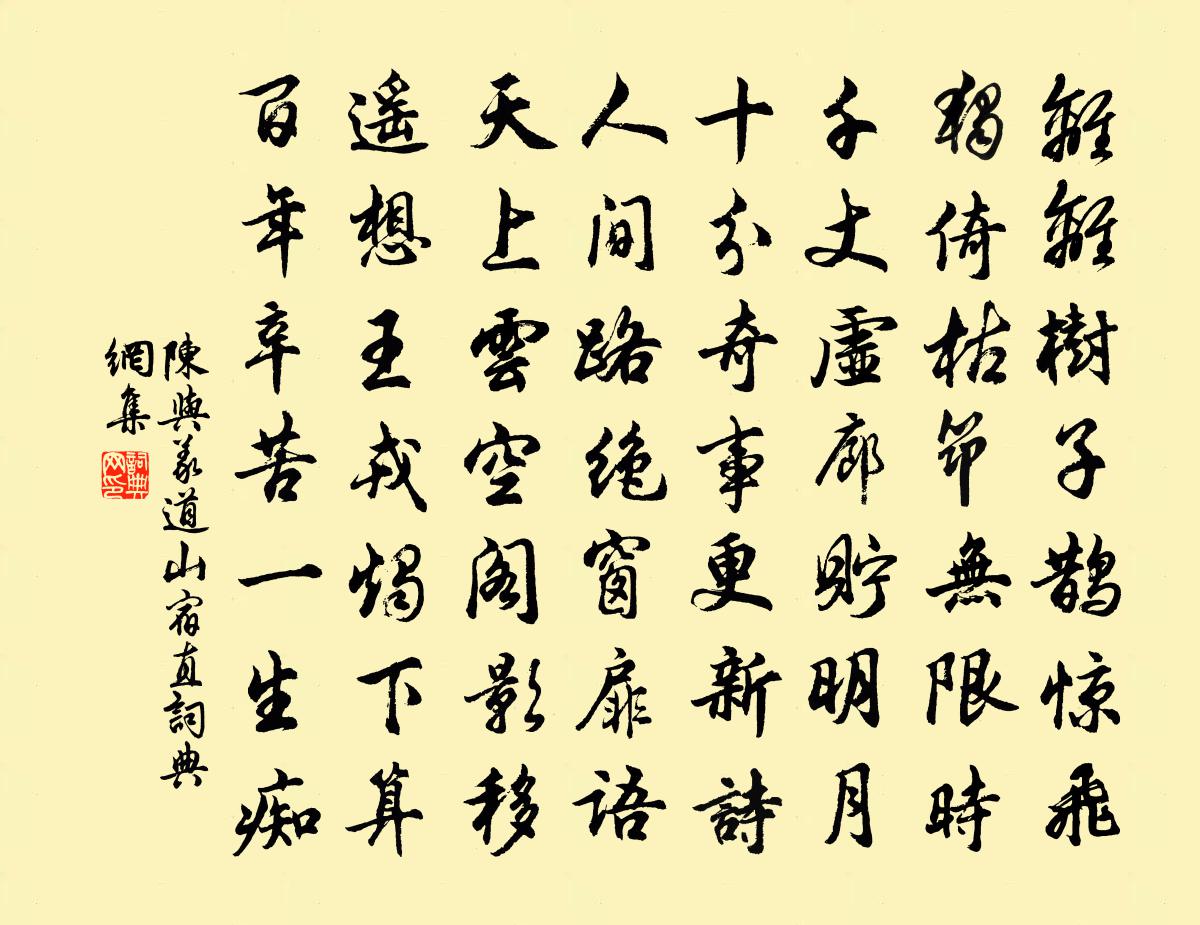 離離樹子鵲惊飛
獨倚枯笻無限時
千丈虛廊貯明月
十分奇事更新詩
人间路絶窗扉語
天上雲空阁影移
遥想王戎燭下算
百年辛苦一生痴
陳與义道山宿直詞典
網集
詞典
网印